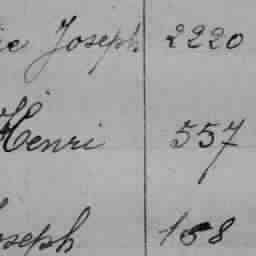 Joseph 2220
Henri 557
Joseph 158